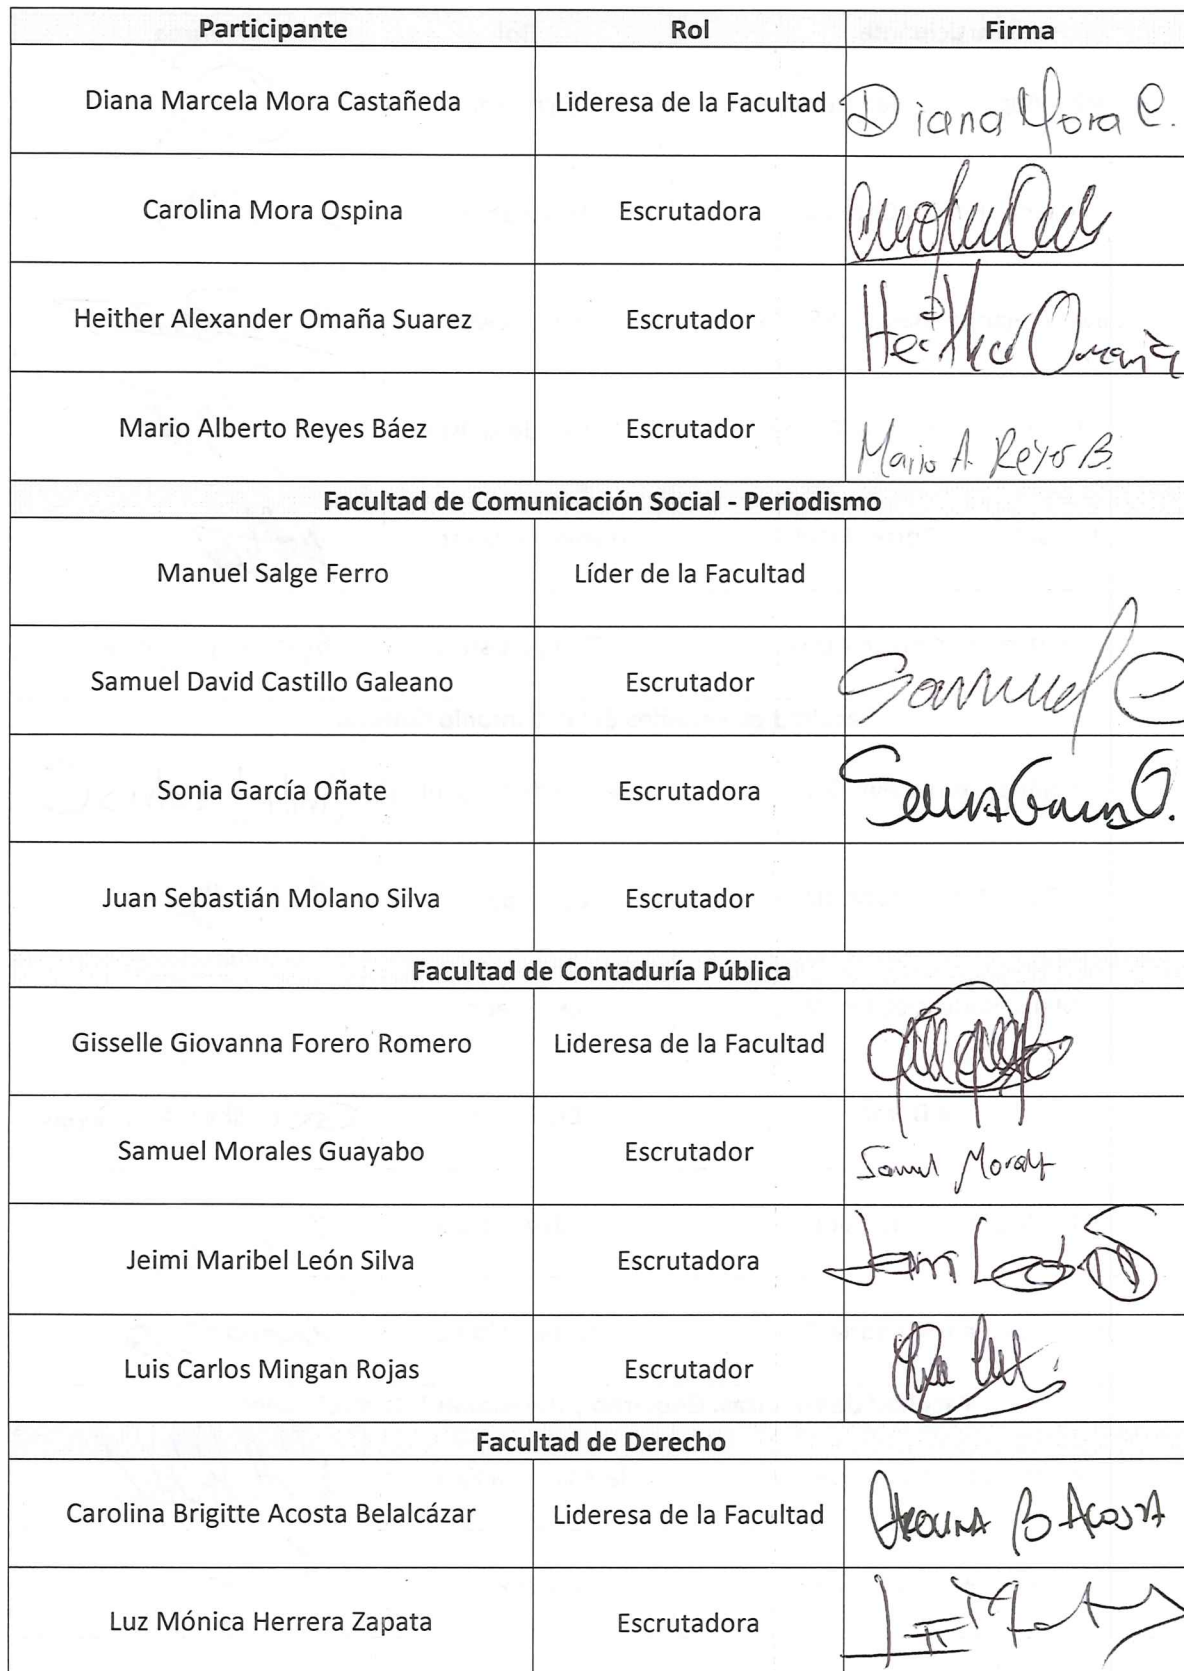 Participante Rol Firma
Diana Marcela Mora Castañeda Lideresa de la Facultad Diana Mora C.
Carolina Mora Ospina Escrutadora
Heither Alexander Omaña Suarez Escrutador Heither Omaña
Mario Alberto Reyes Báez Escrutador Mario A. Reyes B.
Facultad de Comunicación Social - Periodismo
Manuel Salge Ferro Líder de la Facultad
Samuel David Castillo Galeano Escrutador Samuel C
Sonia García Oñate Escrutadora Sonia García O.
Juan Sebastián Molano Silva Escrutador
Facultad de Contaduría Pública
Gisselle Giovanna Forero Romero Lideresa de la Facultad
Samuel Morales Guayabo Escrutador Samuel Morales
Jeimi Maribel León Silva Escrutadora Jeimi León S
Luis Carlos Mingan Rojas Escrutador
Facultad de Derecho
Carolina Brigitte Acosta Belalcázar Lideresa de la Facultad Carolina B Acosta
Luz Mónica Herrera Zapata Escrutadora